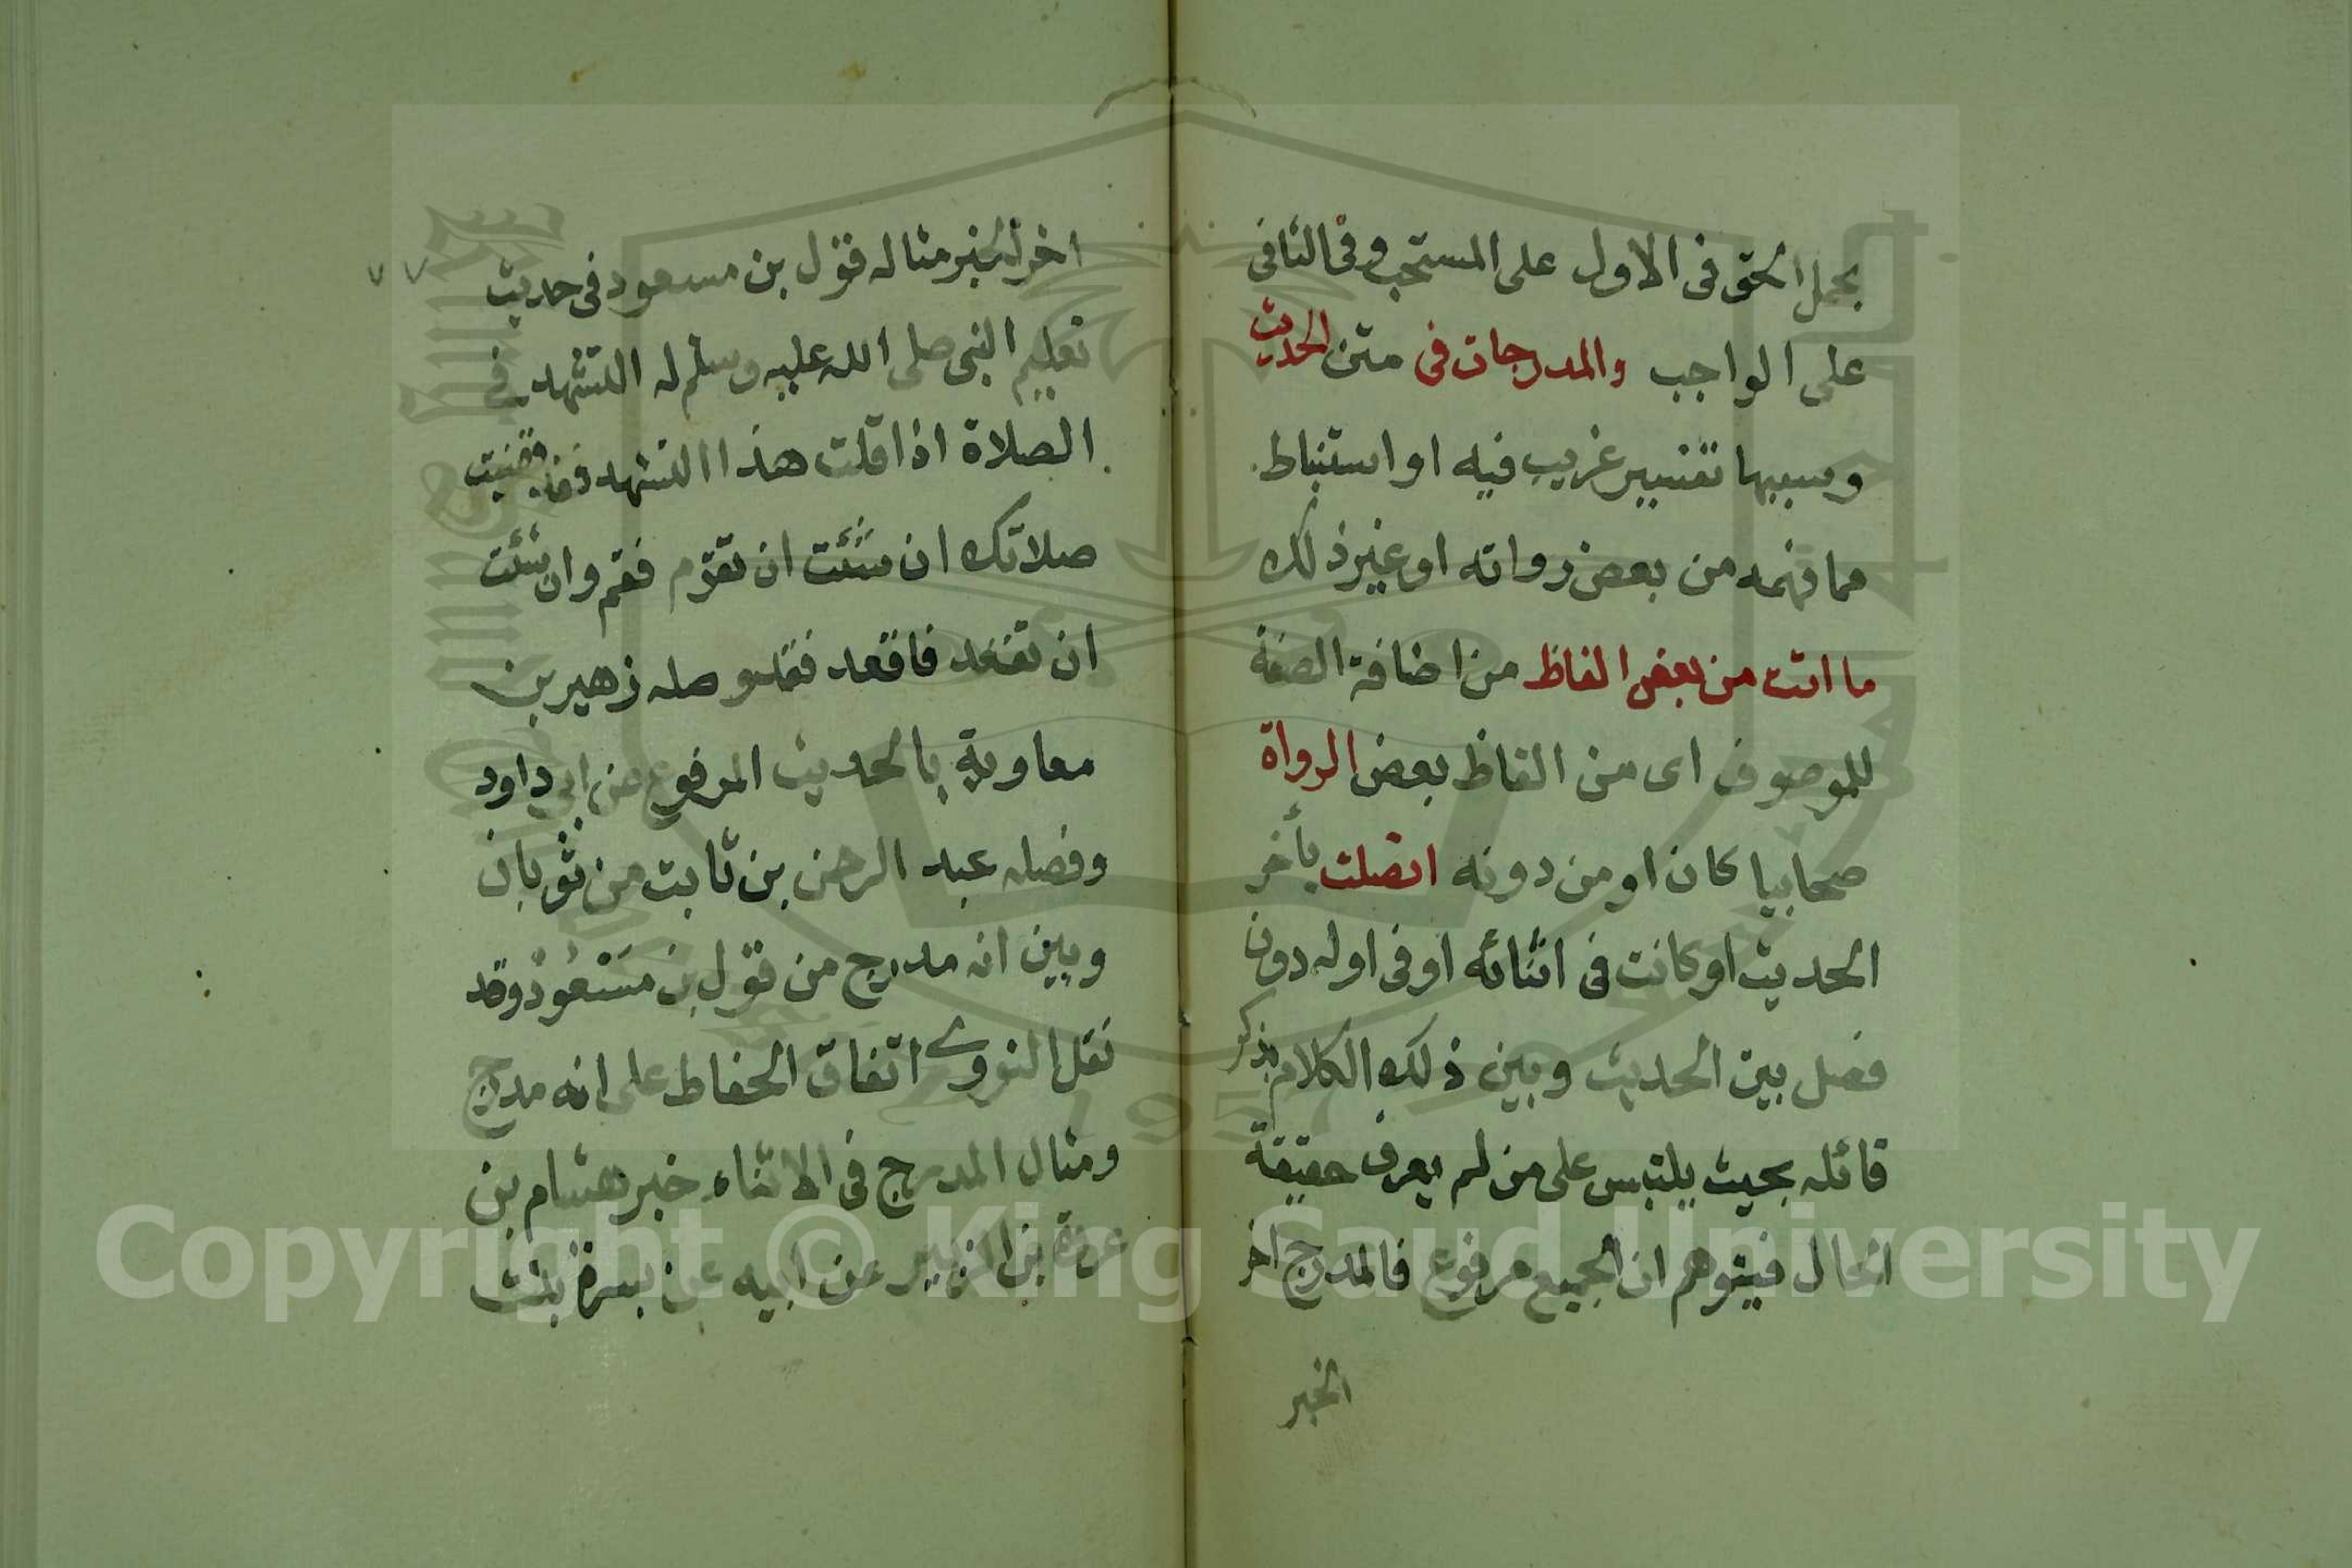 بحمل الحق فى الاول على المستحب وفى الثافى
على الواجب والمدرجات فى متن الحديث
وسببها تفسير غريب فيه او استنباط
مما فهمه من بعض رواته او غير ذلك
ما اتت من بعض الفاظ من اضافة الصفة
للموصوف اى من الفاظ بعض الرواة
صحابيا كان او من دونه اتصلت بأخر
الحديث او كانت فى اثنائه او فى اوله دون
فصل بين الحديث وبين ذلك الكلام بذكر
قائله بحيث يلتبس على من لم يعرف حقيقة
الحال فيتوهم ان الجميع مرفوع فالمدرج اخر
الخبر
٧٧
اخر الخبر مثاله قول بن مسعود فى حديث
تعليم النبى صلى الله عليه وسلم له التشهد فى
الصلاة اذا قلت هذا التشهد فقد قضيت
صلاتك ان شئت ان تقوم فقم وان شئت
ان تقعد فاقعد فقد وصله زهير بن
معاوية بالحديث المرفوع عن ابى داود
وفصله عبد الرحمن بن ثابت من ثوبان
وبين انه مدرج من قول بن مسعود وقد
نقل النووى اتفاق الحفاط على انه مدرج
ومثال المدرج فى الاثناء خبر هشام بن
عروة بن الزبير عن ابيه عن بسرة بنت
Copyright © King Saud University
1957